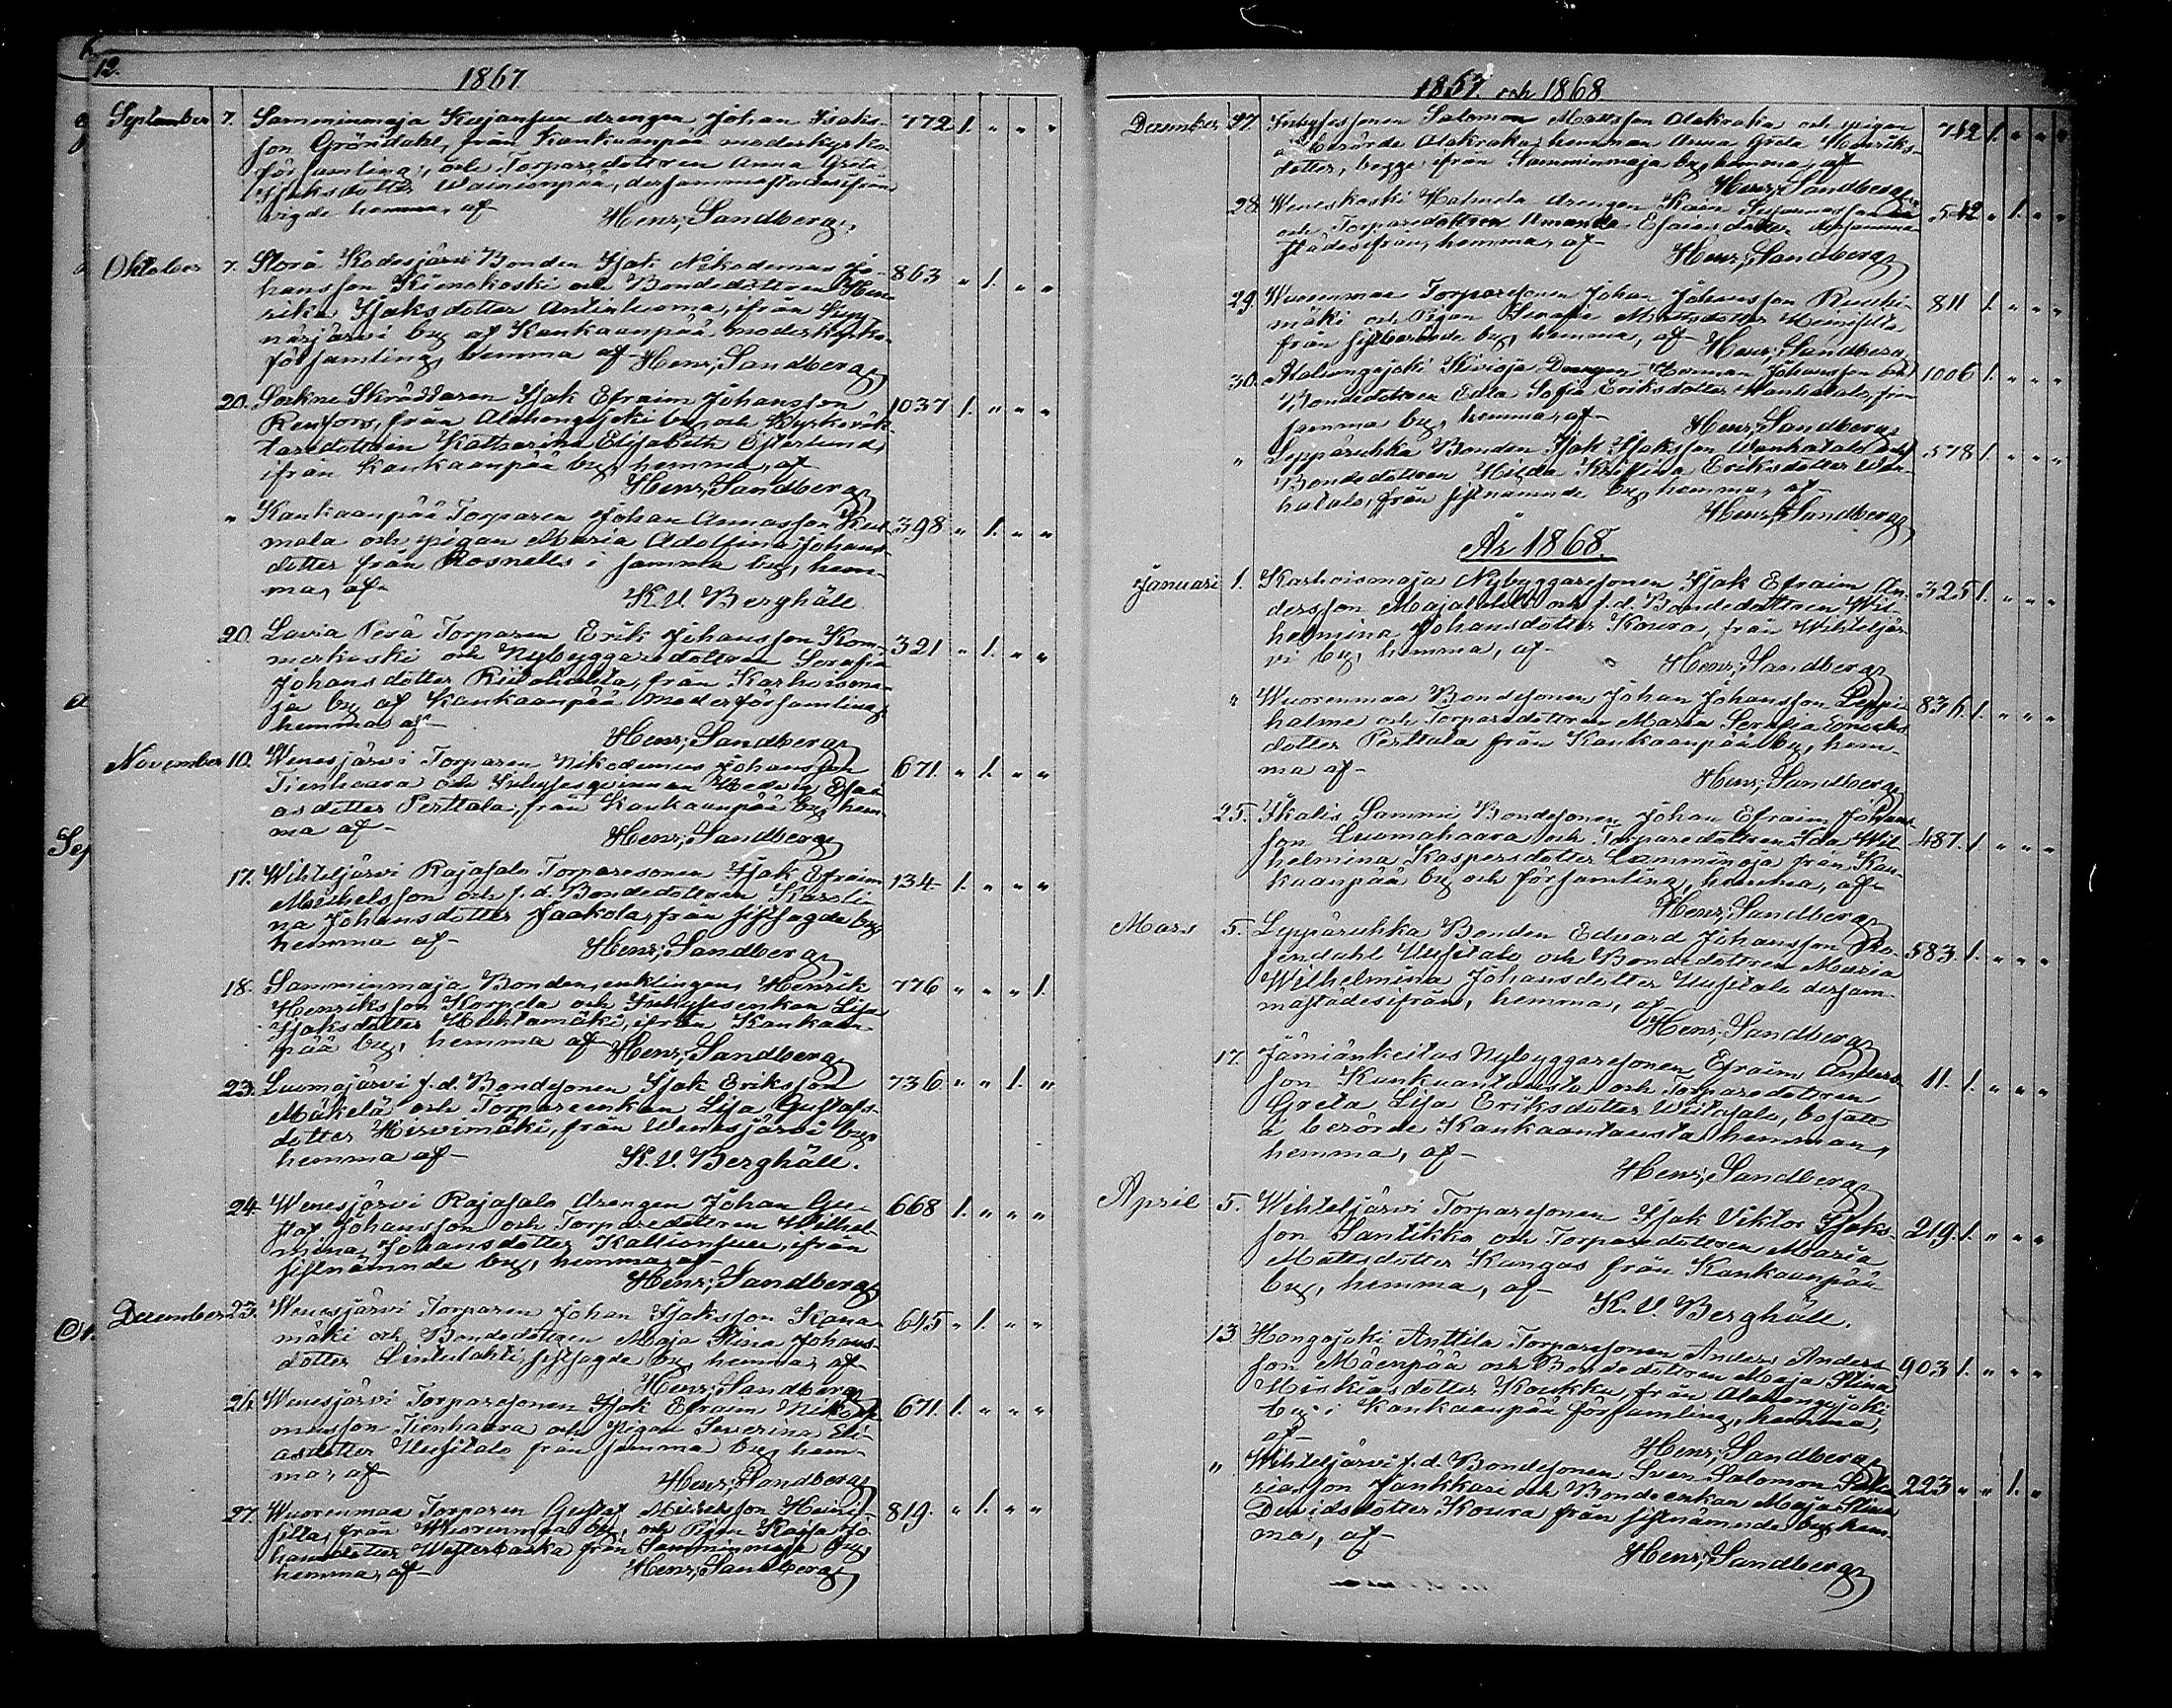 12.
1867
September 7. Samminmaja Kujansuu drengen Johan Isaks- 772 1. " " "
son Gröndahl, från Kankaanpää moderkyrko-
församling, och Torparedottren Anna Greta
Isaksdotter Wainionpää, dersammastädesifrån
vigde hemma, af Henr; Sandberg,
Oktober 7. Storå Kodesjärvi Bonden Isak Nikodemus Jo- 863 " 1. " "
hansson Kienokoski och Bondedottren Hen-
rika Isaksdotter Antinluoma, ifrån
närjärvi by af Kankaanpää moderkyrko-
församling, hemma af Henr; Sandberg
20. Sockne Skräddaren Isak Efraim Johansson 1037 1. " " "
Renfors, från Alahongojoki by och Kyrkovak-
taredottren Katharina Elisabeth Österlund,
ifrån Kankaanpää by, hemma, af
Henr; Sandberg
" Kankaanpää Torparen Johan Aamasson 398 " 1. " "
mala och pigan Maria Adolfina Johans-
dotter från Rosnells i samma by, hem-
ma, af K. V. Berghäll
20. Lavia Perä Torparen Erik Johansson Kom- 321 " 1. " "
merkoski och Nybyggaredottren Serafia
Johansdotter Riitahuhta, från Karhoisma-
ja by af Kankaanpää moderförsamling,
hemma af Henr; Sandberg
November 10. Wenesjärvi Torparen Nikodemus Johansson 671. " 1. " "
Tienhaara och Inhysesqvinnan Hedvig Esai-
asdotter Perttala, från Kankaanpää by, hem-
ma af Henr; Sandberg
17. Wihteljärvi Rajasalo Torparesonen Isak Efraim 134 1. " " "
Michelsson och f.d. Bondedottren Karoli-
na Johansdotter Jaakola, från sistsagde by
hemma af Henr; Sandberg
18. Samminmaja Bonden, enklingen Henrik 776 " " " 1.
Henriksson Korpela och Inhysesenkan Lisa
Isaksdotter Huhtamäki, ifrån Kankaan-
pää by, hemma af Henr; Sandberg
23. Luomajärvi f.d. Bondesonen Isak Eriksson 736 " " 1. "
Mäkelä och Torpareenkan Lisa Gustafs-
dotter Hirvimäki, från Wenesjärvi by,
hemma af K. V. Berghäll.
24. Wenesjärvi Rajasalo drengen Johan Gu- 668 1. " " "
staf Johansson och Torparedottren Wilhel-
mina Johansdotter Kallionsuu, ifrån
sistnämnde by, hemma, af
Henr; Sandberg
December 23. Wenesjärvi Torparen Johan Isaksson Kana- 645 " 1. " "
mäki och Bondedottren Maja Stina Johans-
dotter Lintulahti, sistsagde by, hemma, af
Henr; Sandberg
26. Wenesjärvi Torparesonen Isak Efraim Nikode- 671. 1. " " "
musson Tienhaara och Pigan Severina Eli-
asdotter Uusitalo från samma by, hem-
ma, af Henr; Sandberg
27. Wuorenmaa Torparen Gustaf Michelsson Heini- 819. " 1. " "
silta, från Wuorenmaa by, och Pigan Kaisa Jo-
hansdotter Westerbacka från Samminmaja by,
hemma, af Henr; Sandberg
1867. och 1868.
December 27. Inhysessonen Salomon Mattsson Alakraka och pigan 742 1. " " "
å berörde Alakraka hemman Anna Greta Henriks-
dotter, begge ifrån Samminmaja by, hemma, af
Henr; Sandberg
28. Weneskoski Hatmela drengen Kain 542 " 1. " "
och Torparedottren Amanda Esaiasdotter dersamma-
städesifrån, hemma, af Henr; Sandberg
29. Wuorenmaa Torparesonen Johan Johansson Ruohi- 811 1. " " "
mäki och Pigan Serafia Mattsdotter Heinisilta
från sistberörde by, hemma, af Henr; Sandberg
30. Alahongojoki Kivioja Drengen Herman Johansson och 1006 1. " " "
Bondedottren Edla Sofia Eriksdotter Wanhatalo, från
samma by, hemma, af Henr; Sandberg
" Leppäruhka Bonden Isak Isaksson Wanhatalo och 578 1. " " "
Bondedottren Hilda Kristina Eriksdotter Wan-
hatalo, från sistnämnde by, hemma, af
Henr; Sandberg
År 1868.
Januari 1. Karhoismaja Nybyggaresonen Isak Efraim An- 325 1. " " "
dersson Majalahti och f.d. Bondedottren Wil-
helmina Johansdotter Koura, från Wihteljär-
vi by, hemma, af Henr; Sandberg
" Wuorenmaa Bondesonen Johan Johansson Leppi- 836 1. " " "
halme och Torparedottren Maria Serafia Eriks-
dotter Perttula från Kankaanpää by, hem-
ma af Henr; Sandberg
25. Ikalis Sammi Bondesonen Johan Efraim Johans- 487. 1. " " "
son Luomahaara och Torparedottren Ida Wil-
helmina Kaspersdotter Lamminoja från Kan-
kaanpää by och församling, hemma, af
Henr; Sandberg
Mars 5. Leppäruhka Bonden Eduard Johansson Ro- 583. 1. " " "
sendahl Uusitalo och Bondedottren Maria
Wilhelmina Johansdotter Uusitalo dersam-
mastädesifrån, hemma, af
Henr; Sandberg
17. Jämiänkeitas Nybyggaresonen Efraim Anders- 11. 1. " " "
son Kankaantausta och Torparedottren
Greta Lisa Eriksdotter Weitasalo, bosatt
å berörde Kankaantausta hemman,
hemma, af
Henr; Sandberg
April 5. Wihteljärvi Torparesonen Isak Viktor Isaks- 219. 1. " " "
son Santikko och Torparedottren Maria
Mattsdotter Kangas från Kankaanpää
by, hemma, af
K. V. Berghäll.
13 Hongojoki Anttila Torparesonen Anders Anders- 903 1. " " "
son Mäenpää och Bondedottren Maja Stina
Miskiasdotter Koukku, från Alahongojoki
by i Kankaanpää församling, hemma,
af Henr; Sandberg
" Wihteljärvi f.d. Bondesonen Sven Salomon 223 " " 1. "
riasson Jankkari och Bondeenkan Maja Stina
Davidsdotter Koura från sistnämnde by, hem-
ma, af
Henr; Sandberg